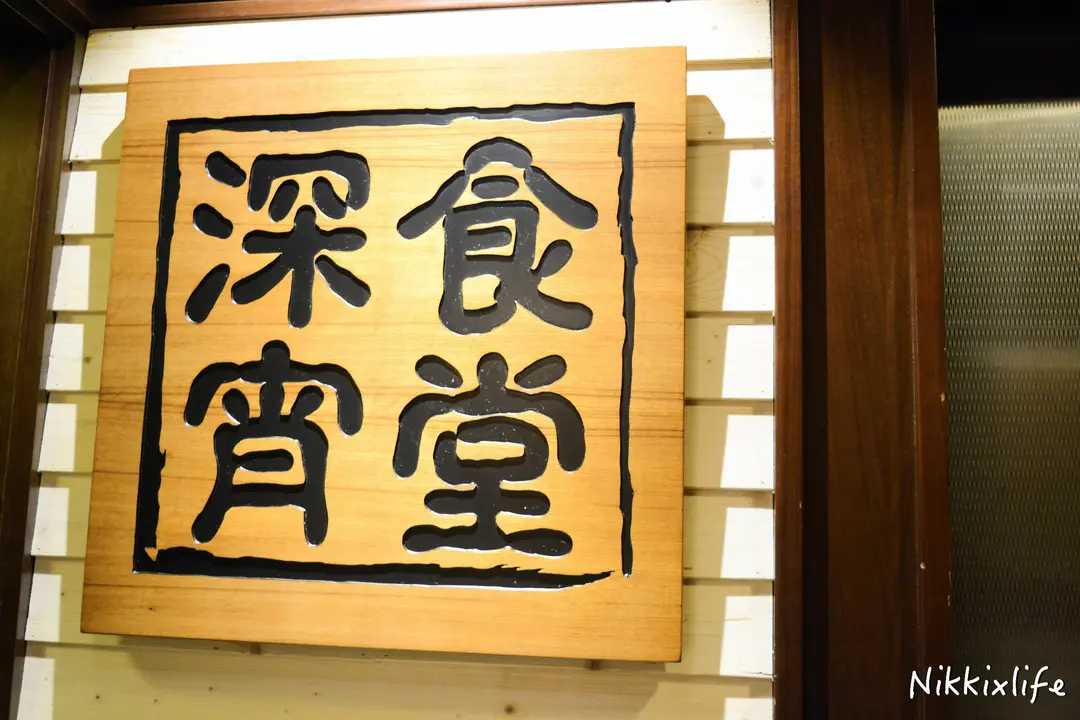 深宵
食堂
Nikkixlife